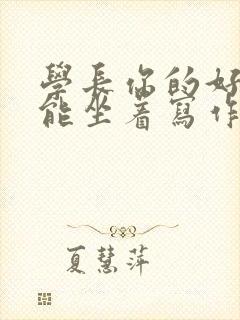 學長你的好
能坐著寫作
夏慧萍